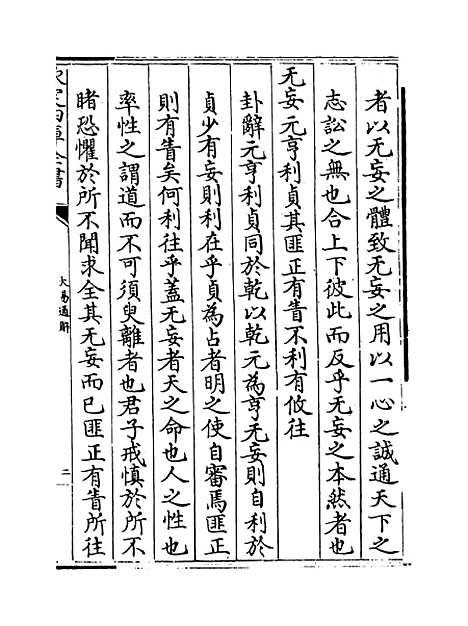 者以无妄之體致无妄之用以一心之誠通天下之
志訟之無也合上下彼此而反乎无妄之本然者也
无妄元亨利貞其匪正有眚不利有攸往
卦辭元亨利貞同於乾以乾元為亨无妄則自利於
貞少有妄則利在乎貞為占者明之使自審焉匪正
則有眚矣何利往乎蓋无妄者天之命也人之性也
率性之謂道而不可須臾離者也君子戒慎於所不
睹恐懼於所不聞求全其无妄而已匪正有眚所往
欽定四庫全書
大易通解
二